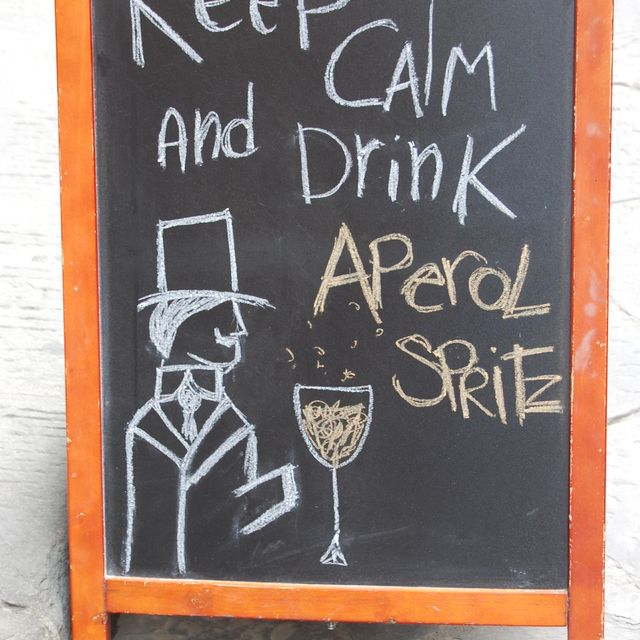 KEEP
CAlM
And
DrinK
APeroL
SPRiTZ